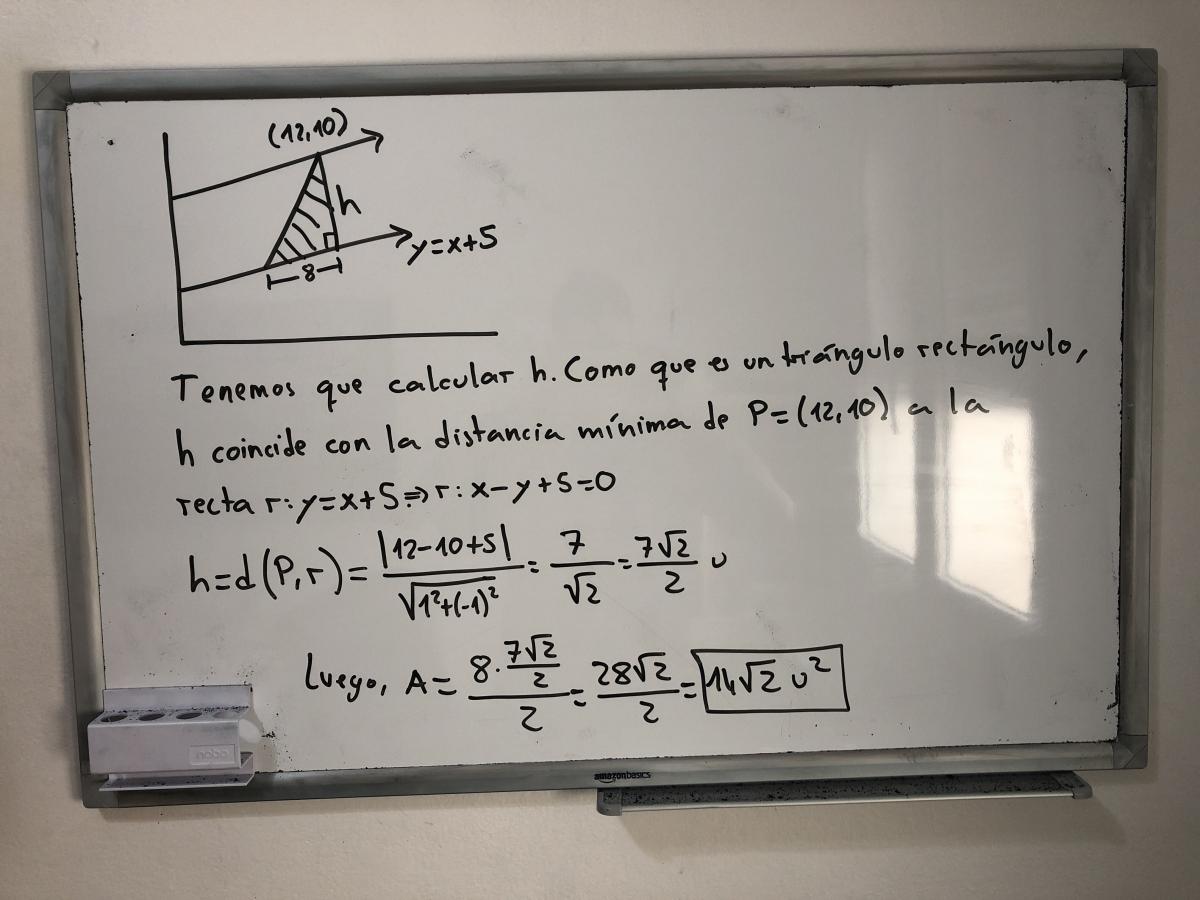 (12,10)
h
y=x+5
8
Tenemos que calcular h. Como que es un triángulo rectángulo,
h coincide con la distancia mínima de P=(12,10) a la
recta r: y=x+5 ⇒ r: x-y+5=0
h=d(P,r)= |12-10+5| / √(1²+(-1)²) = 7/√2 = 7√2/2 u
Luego, A= (8·7√2/2)/2 = 28√2/2 = 14√2 u²
nobo
amazonbasics